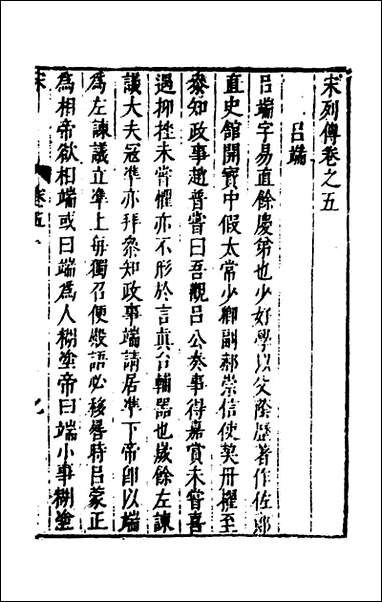 宋列傳卷之五
吕端
吕端字易直餘慶弟也少好學以父蔭歷著作佐郎
直史館開寶中假太常少卿副郝崇信使契丹擢至
叅知政事趙普嘗曰吾觀吕公奏事得嘉賞未嘗喜
遇抑挫未嘗懼亦不形於言真台輔器也歲餘左諫
議大夫冦準亦拜叅知政事端請居準下帝即以端
為左諫議立準上每獨召便殿語必移晷時吕蒙正
為相帝欲相端或曰端為人糊塗帝曰端小事糊塗
卷五